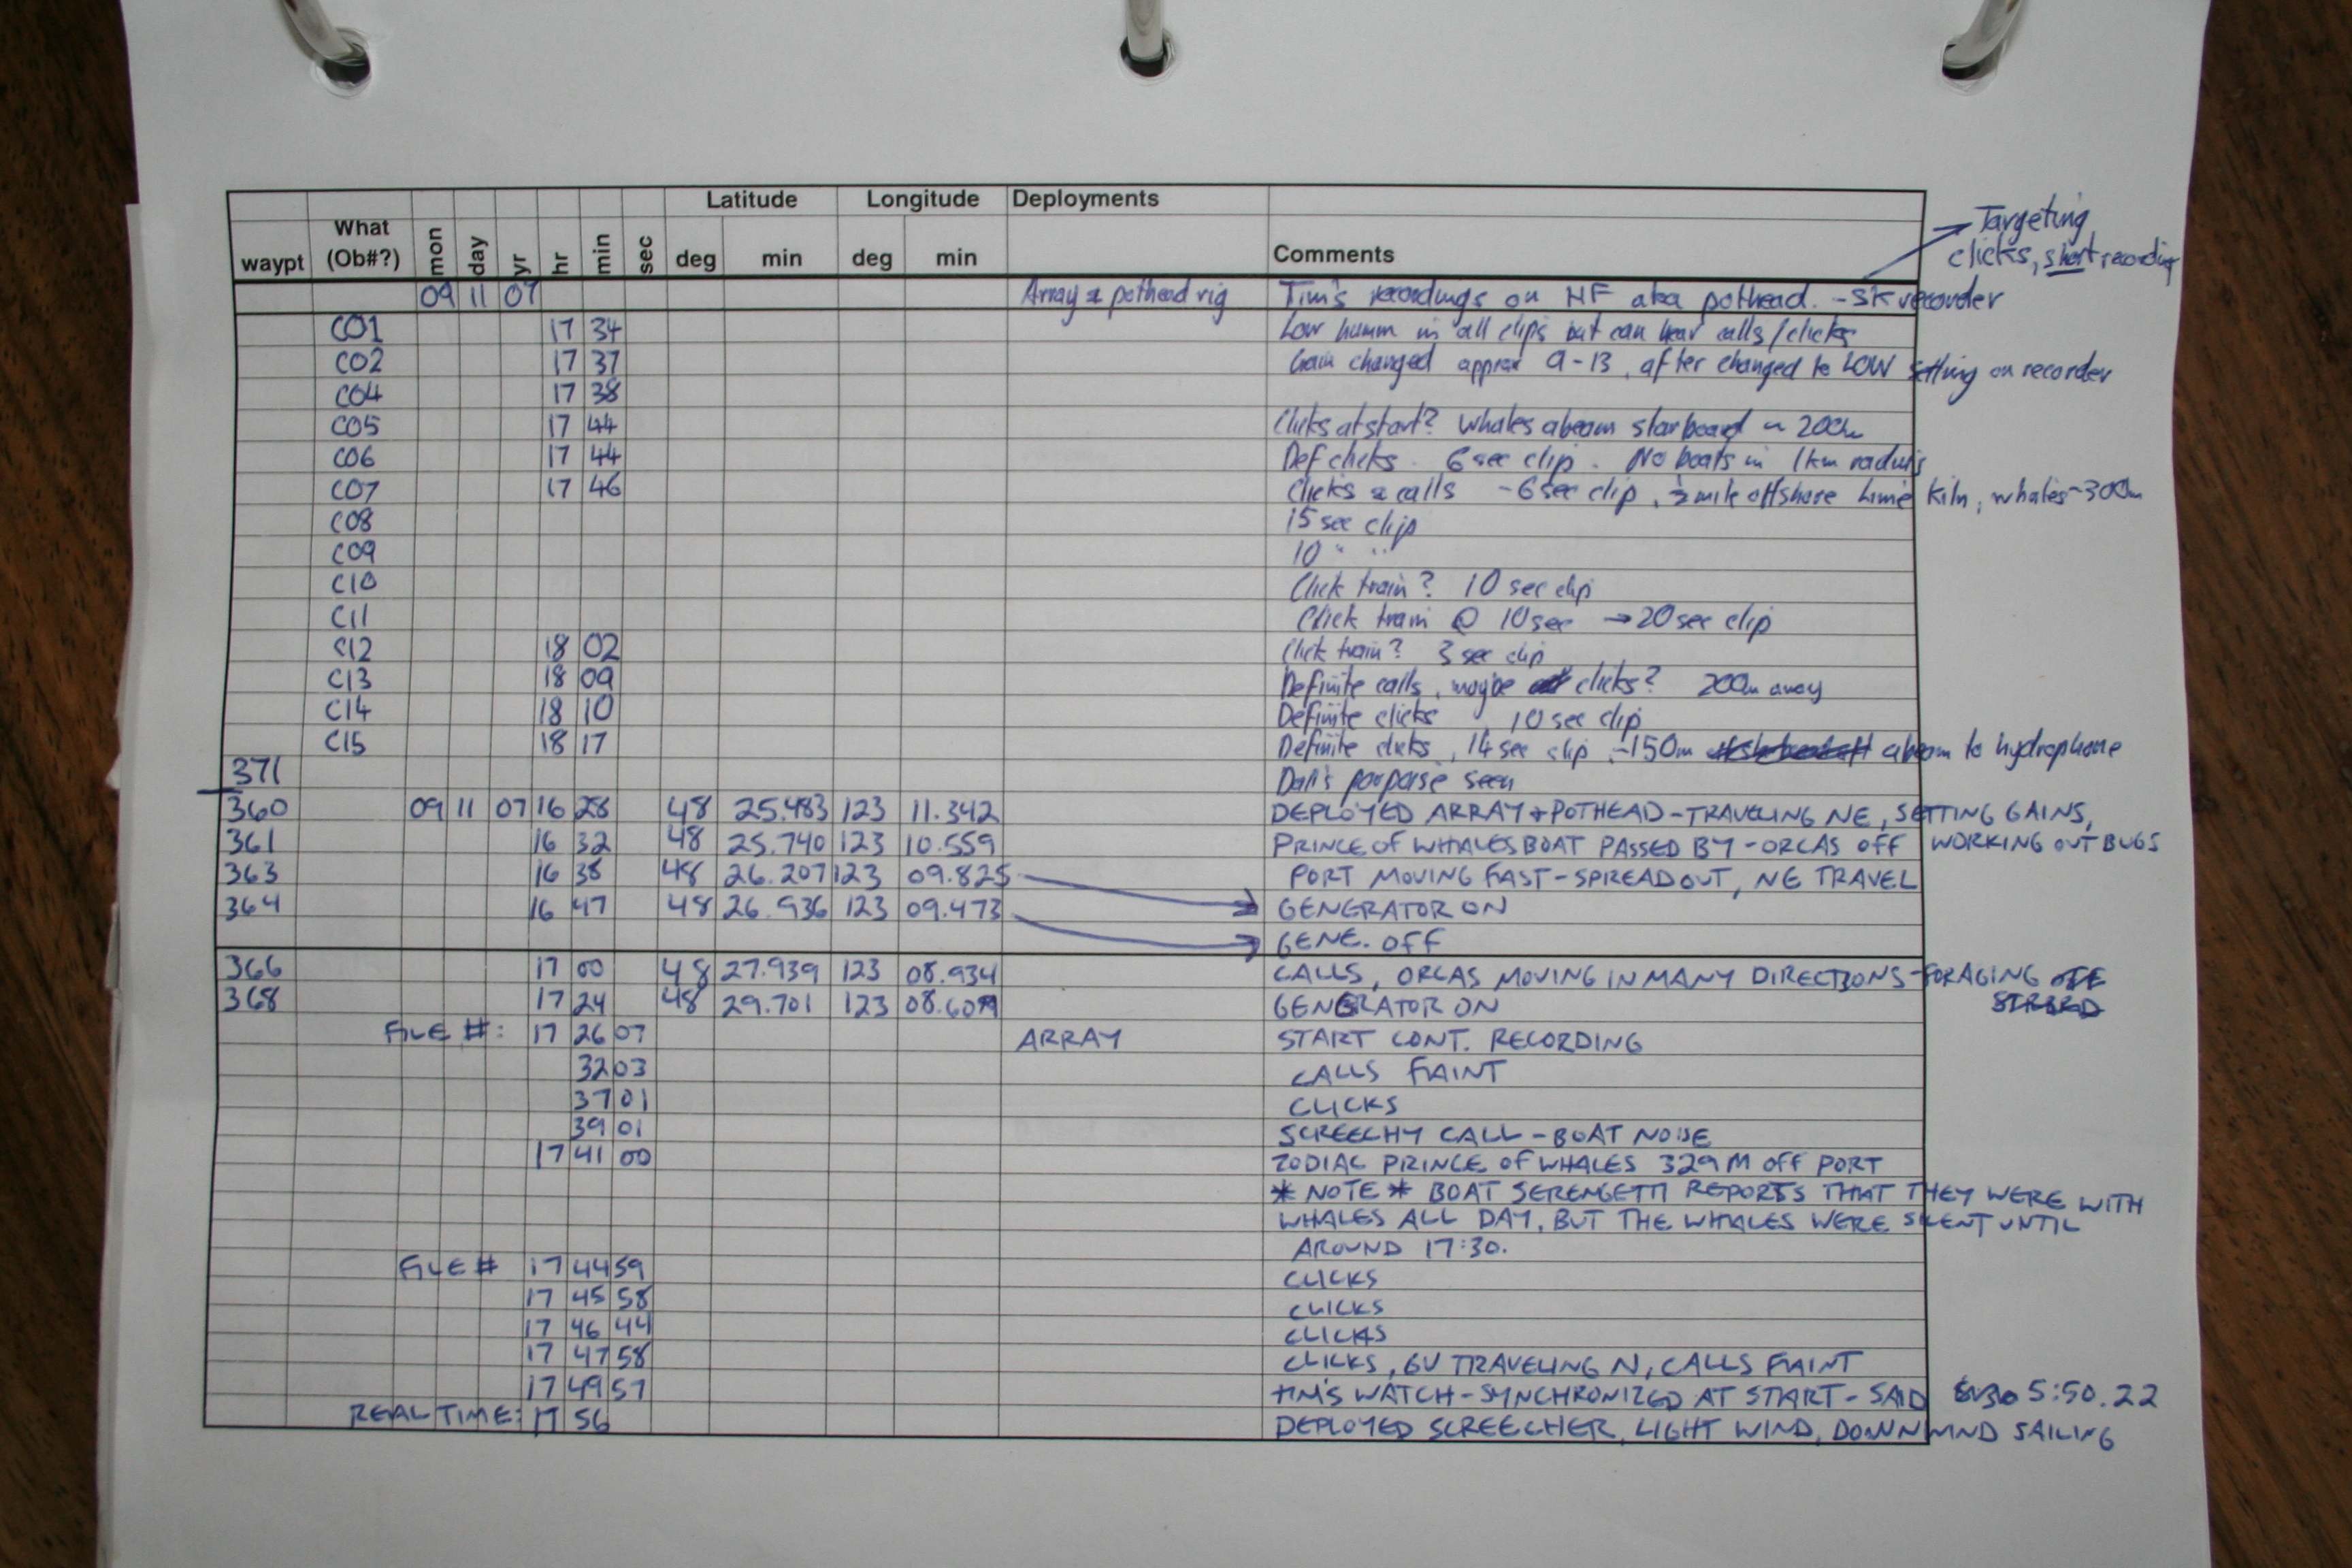 Latitude Longitude Deployments
waypt What (Ob#?) mon day yr hr min sec deg min deg min Comments
Targeting
clicks, short recording
09 11 07 Array & pothead rig Tim's recordings on HF aka pothead. - SK recorder
C01 17 34 Low humm in all clips but can hear calls/clicks
C02 17 37 Gain changed approx 9-13, after changed to LOW setting on recorder
C04 17 38
C05 17 44 Clicks at start? Whales abeam starboard ~ 200m
C06 17 44 Def clicks. 6 sec clip. No boats in 1km radius
C07 17 46 Clicks & calls - 6 sec clip, ½ mile offshore Lime Kiln, whales ~300m
C08 15 sec clip
C09 10 " "
C10 Click train? 10 sec clip
C11 Click train @ 10sec → 20 sec clip
C12 18 02 Click train? 3 sec clip
C13 18 09 Definite calls, maybe clicks? 200m away
C14 18 10 Definite clicks, 10 sec clip
C15 18 17 Definite clicks, 14 sec clip, ~150m abeam to hydrophone
371 Dall's porpoise seen
360 09 11 07 16 28 48 25.483 123 11.342 DEPLOYED ARRAY + POTHEAD - TRAVELING NE, SETTING GAINS,
WORKING OUT BUGS
361 16 32 48 25.740 123 10.559 PRINCE OF WHALES BOAT PASSED BY - ORCAS OFF
363 16 38 48 26.207 123 09.825 PORT MOVING FAST - SPREAD OUT, NE TRAVEL
364 16 47 48 26.936 123 09.473 GENERATOR ON
GENE. OFF
366 17 00 48 27.939 123 08.934 CALLS, ORCAS MOVING IN MANY DIRECTIONS - FORAGING OFF
STRBRD
368 17 24 48 29.701 123 08.609 GENERATOR ON
FILE #: 17 26 07 ARRAY START CONT. RECORDING
32 03 CALLS FAINT
37 01 CLICKS
39 01 SCREECHY CALL - BOAT NOISE
17 41 00 ZODIAC PRINCE OF WHALES 329 M OFF PORT
* NOTE * BOAT SERENGETTI REPORTS THAT THEY WERE WITH
WHALES ALL DAY, BUT THE WHALES WERE SILENT UNTIL
AROUND 17:30.
FILE # 17 44 59 CLICKS
17 45 58 CLICKS
17 46 44 CLICKS
17 47 58 CLICKS, GV TRAVELING N, CALLS FAINT
17 49 57 TIM'S WATCH - SYNCHRONIZED AT START - SAID 5:50.22
REAL TIME: 17 56 DEPLOYED SCREECHER, LIGHT WIND, DOWNWIND SAILING